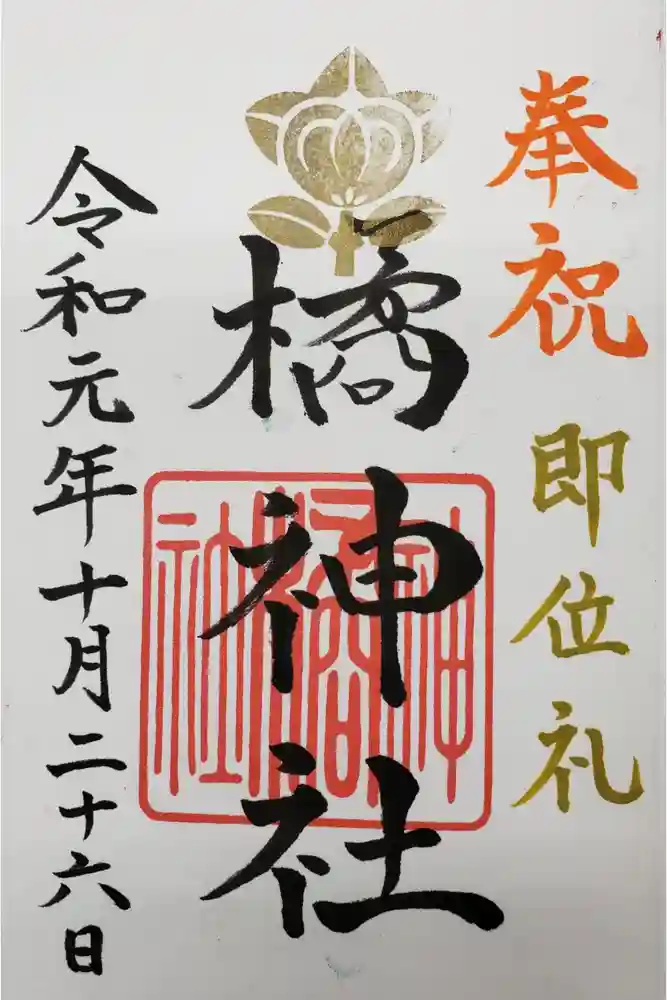 奉祝 即位礼
橘神社
橘神社
令和元年十月二十六日